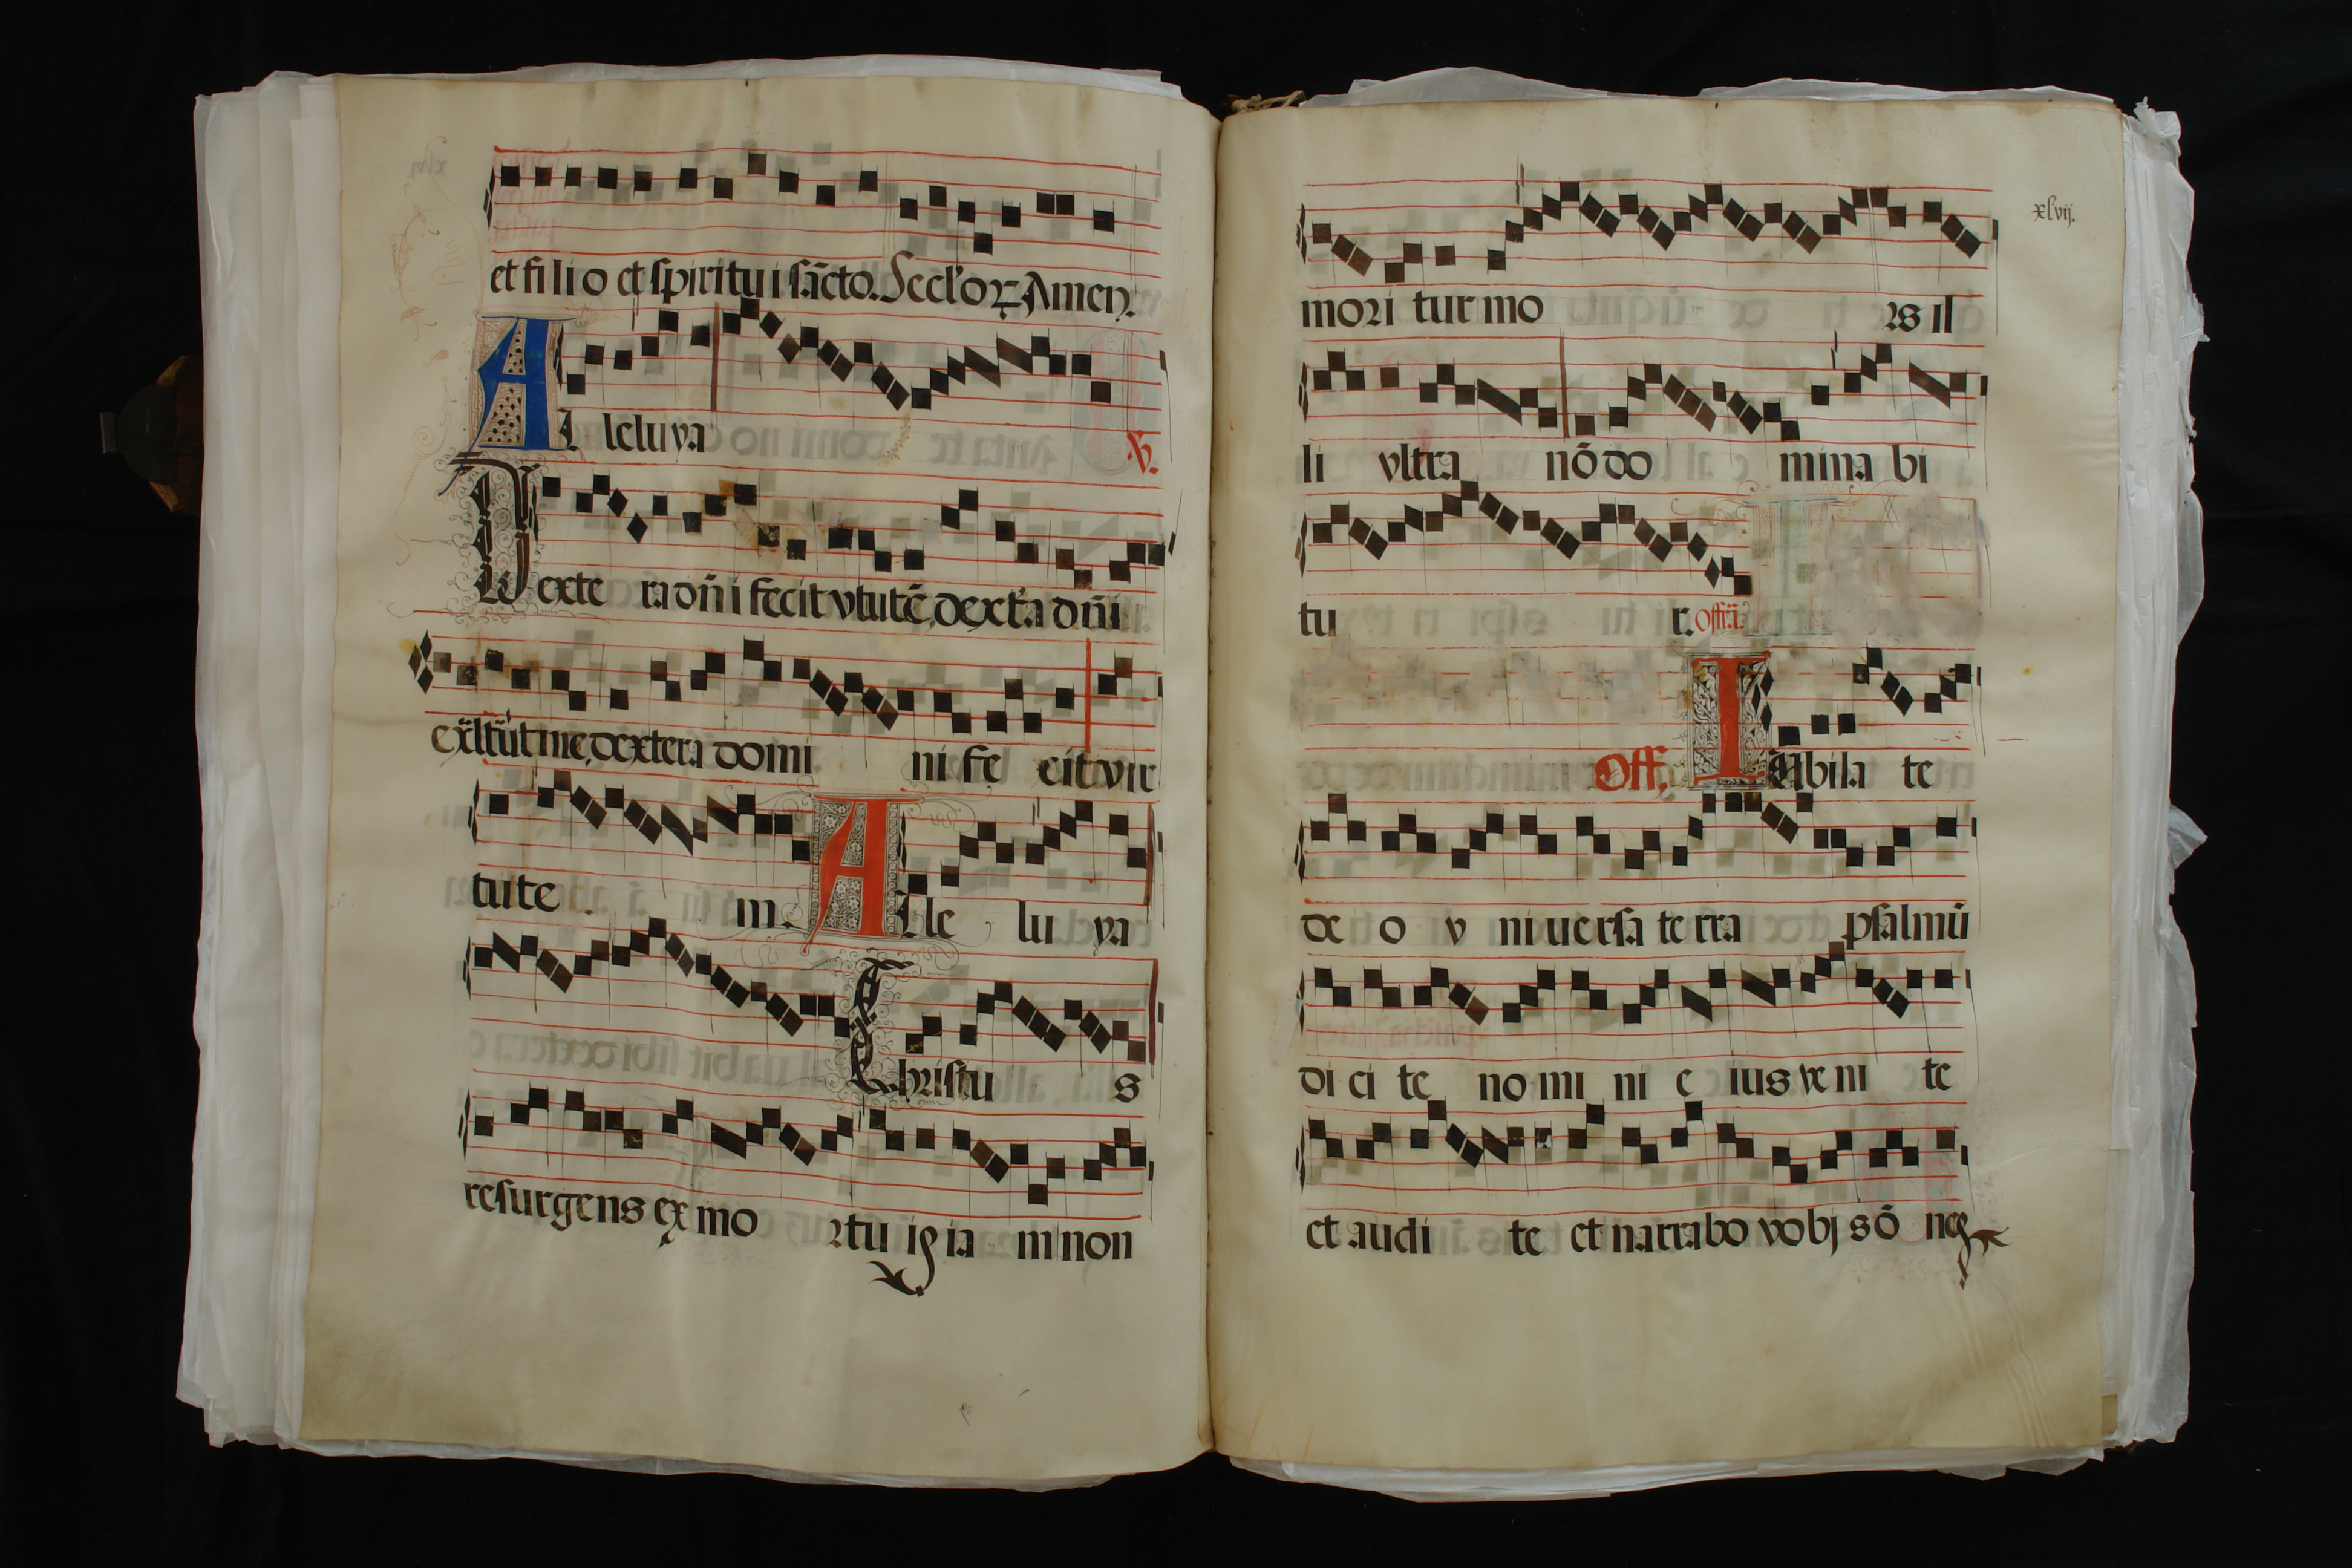 et filio et spiritui sācto. Secl'oꝝ Amen.
Alleluya ℣.
Dextera dn̄i fecit v̄tutē, dext'a dn̄i
exaltauit me, dextera domini fecit vir
tutem. Alleluya
Christus
resurgens ex mortuis iam non
xlvij.
moritur mors il
li vltra nō do minabi
tur. Offr̄i.
Off. Iubilate
deo vniuersa terra psalmū
dicite nomini eius venite
et audite et narrabo vobis ōneꝫ